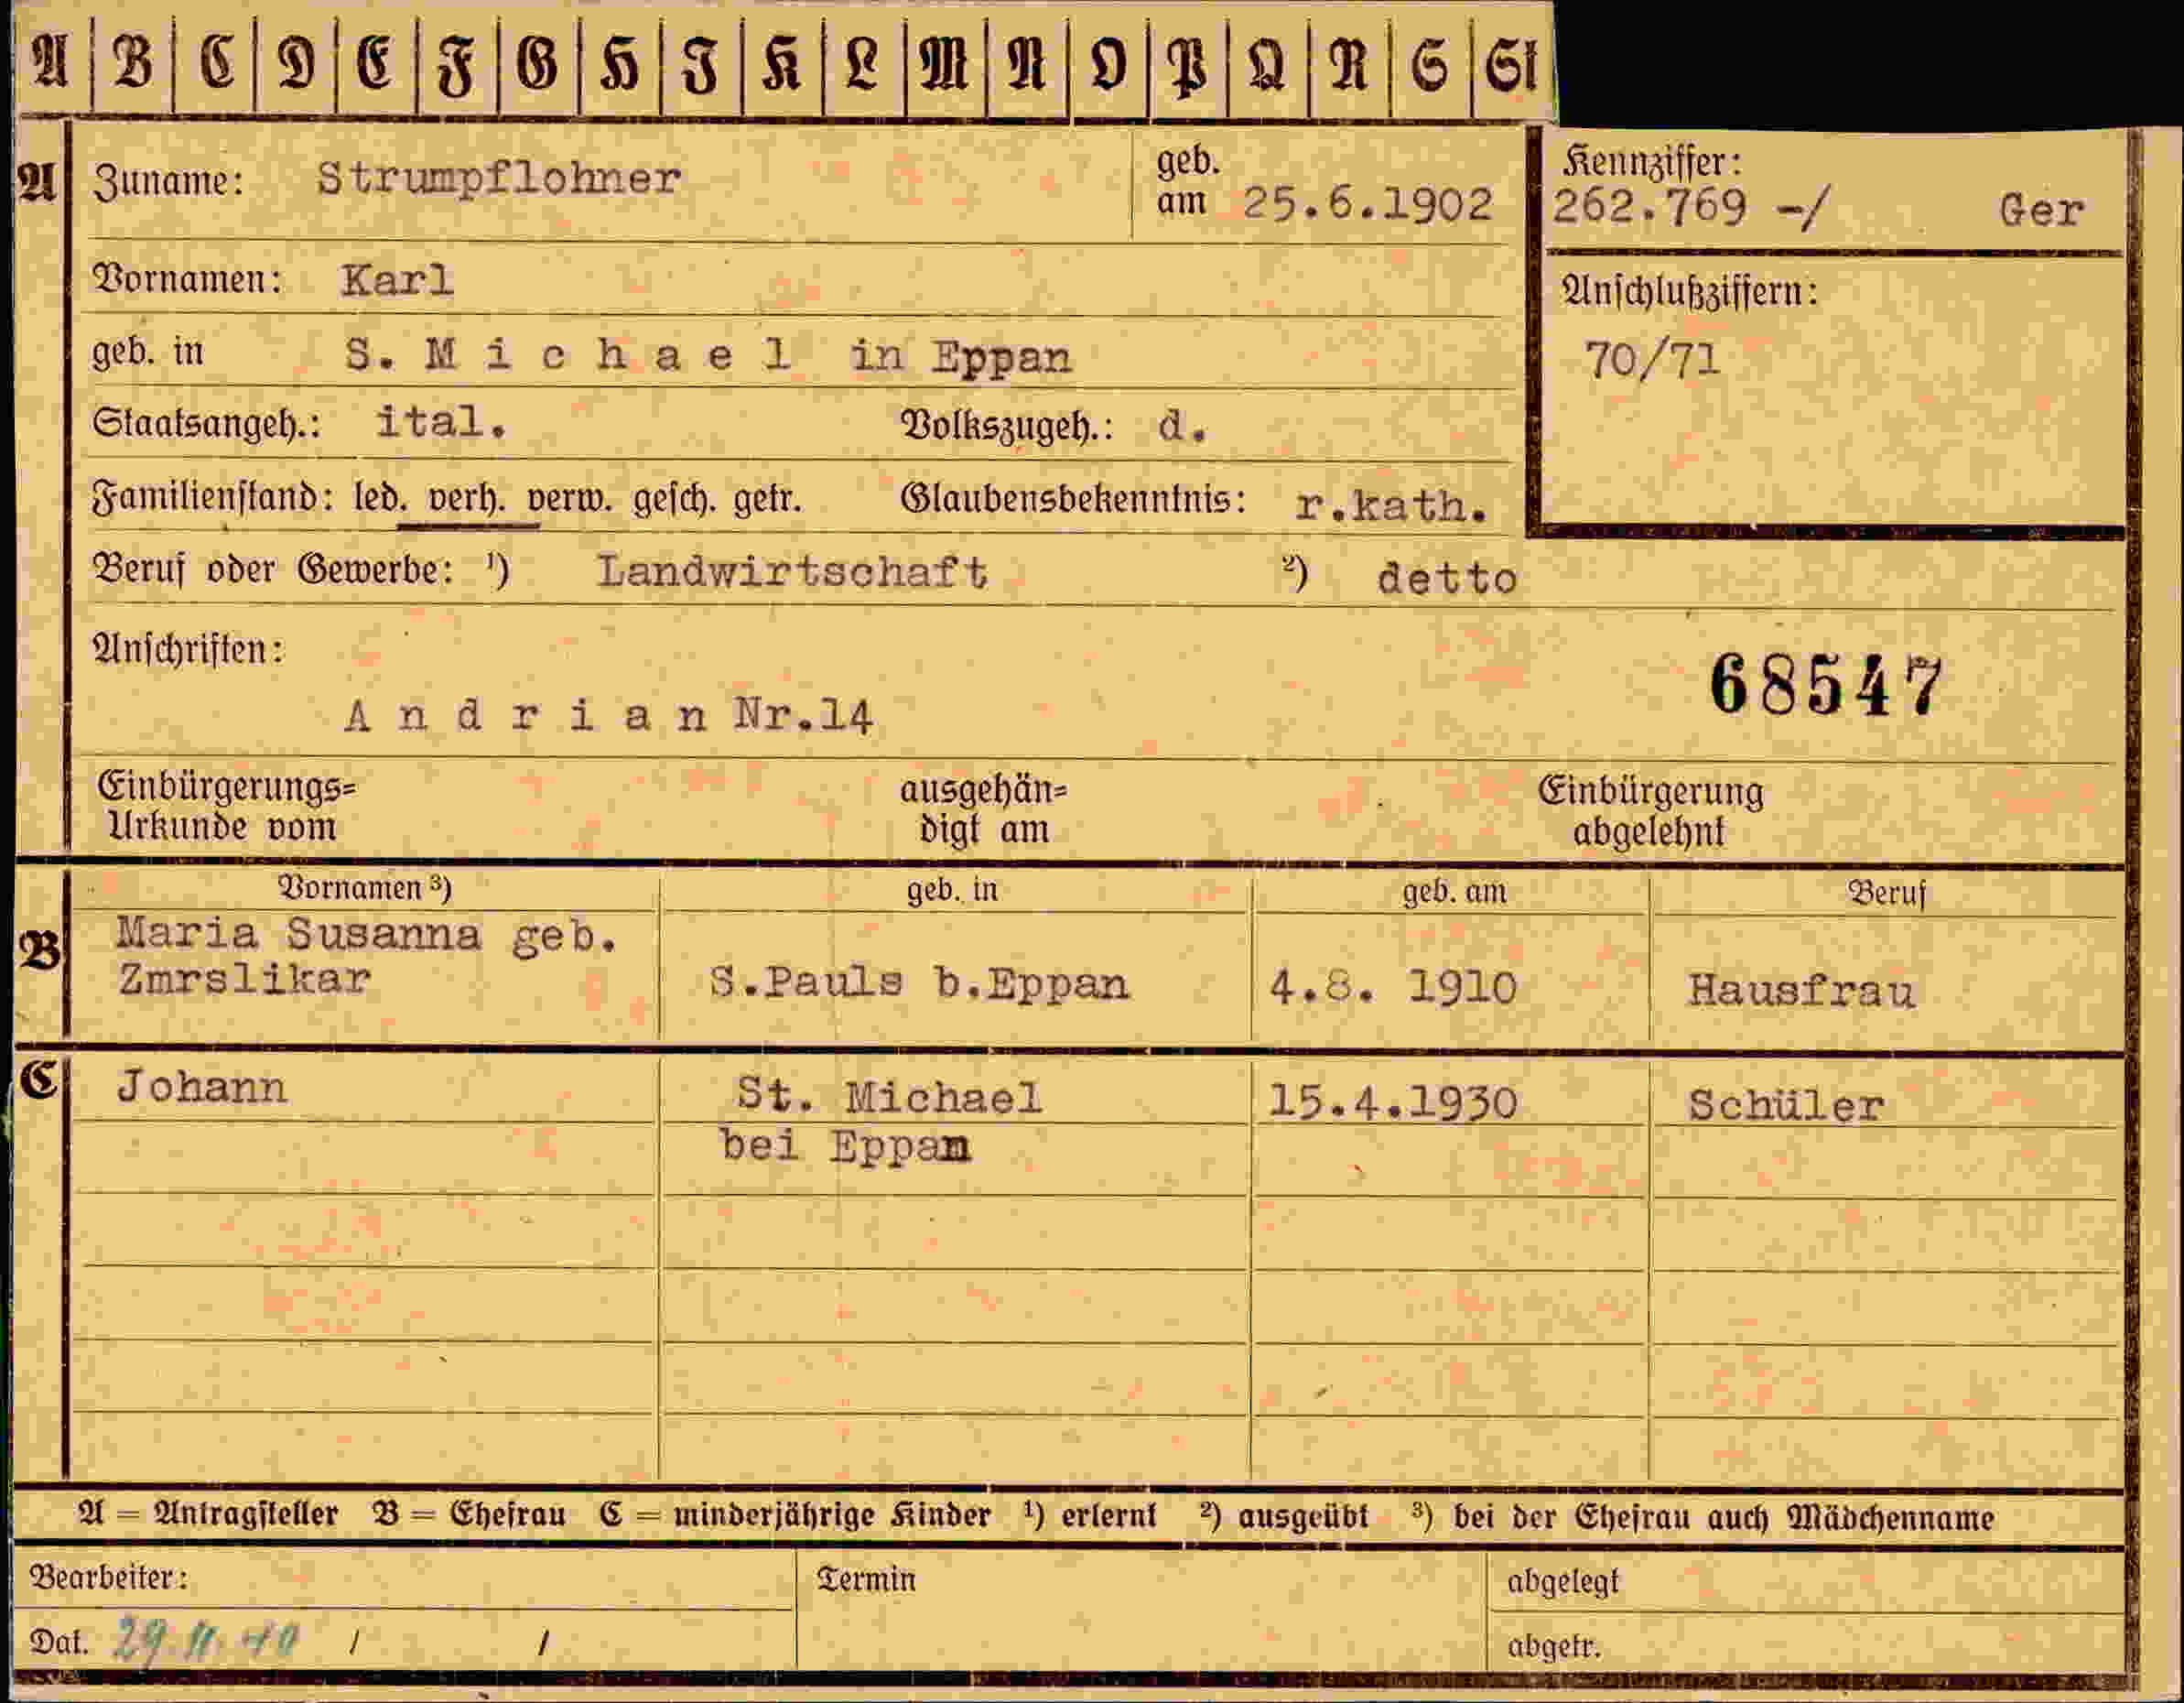 A B C D E F G H I K L M N O P Q R S St
A Zuname: Strumpflohner geb. am 25.6.1902
Kennziffer:
262.769 -/ Ger
Vornamen: Karl
Anschlußziffern:
70/71
geb. in S. M i c h a e l in Eppan
Staatsangeh.: ital. Volkszugeh.: d.
Familienstand: led. verh. verw. gesch. getr. Glaubensbekenntnis: r.kath.
Beruf oder Gewerbe: ¹) Landwirtschaft ²) detto
Anschriften:
68547
A n d r i a n Nr.14
Einbürgerungs= ausgehän= Einbürgerung
Urkunde vom digt am abgelehnt
Vornamen ³) geb. in geb. am Beruf
B Maria Susanna geb.
Zmrslikar S.Pauls b.Eppan 4.8. 1910 Hausfrau
C Johann St. Michael 15.4.1930 Schüler
bei Eppan
A = Antragsteller B = Ehefrau C = minderjährige Kinder ¹) erlernt ²) ausgeübt ³) bei der Ehefrau auch Mädchenname
Bearbeiter: Termin abgelegt
Dat. 29.11.40 / / abgetr.